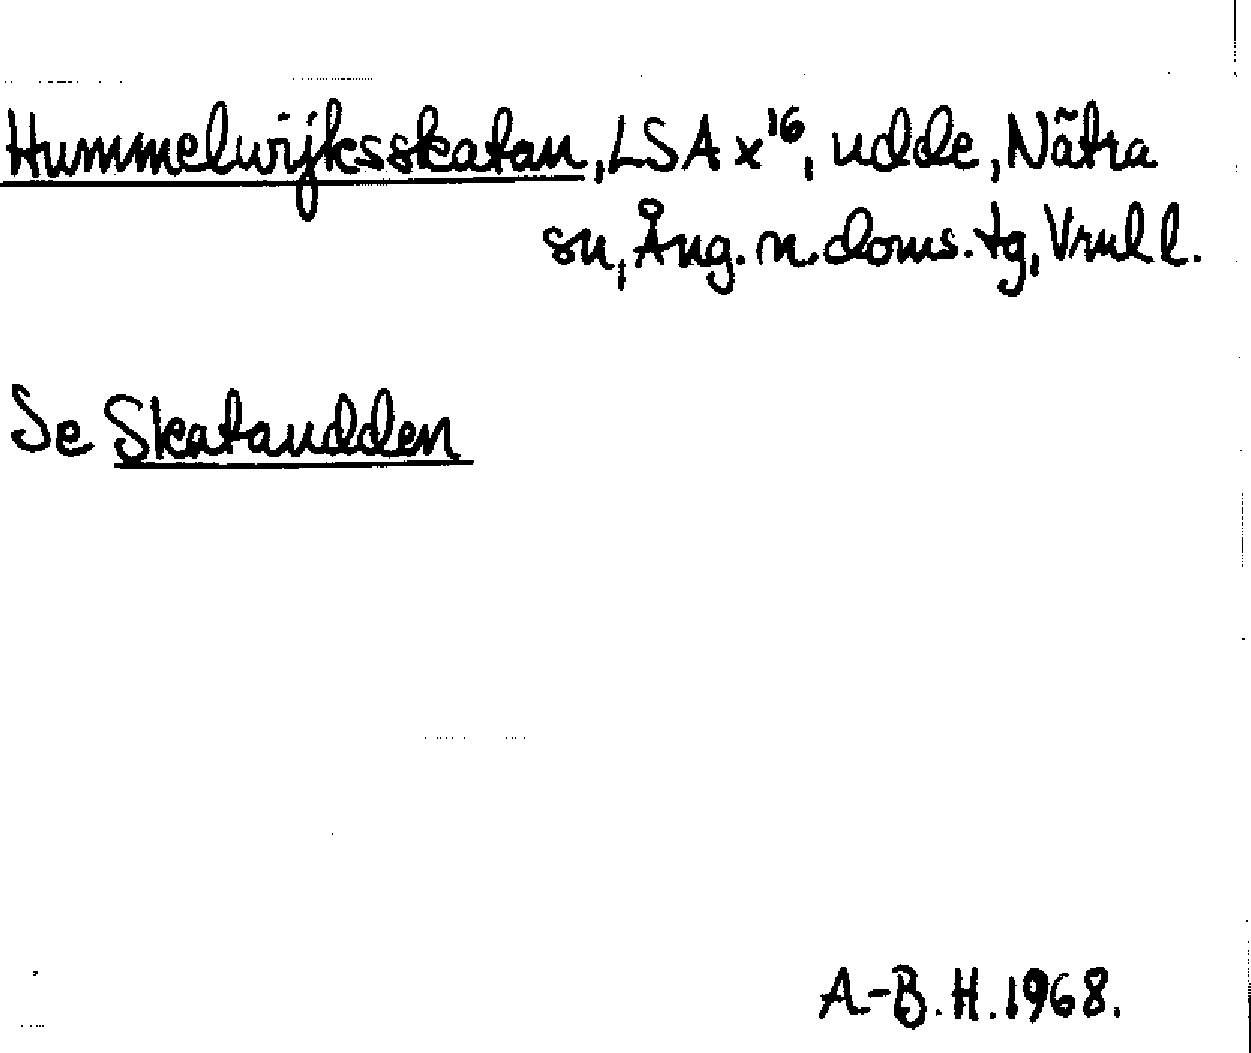 Hummelwijksskatan, LSA x¹⁶, udde, Nätra
sn, Ång. n. doms. tg, Vrnl l.
Se Skataudden
A.-B. H. 1968.